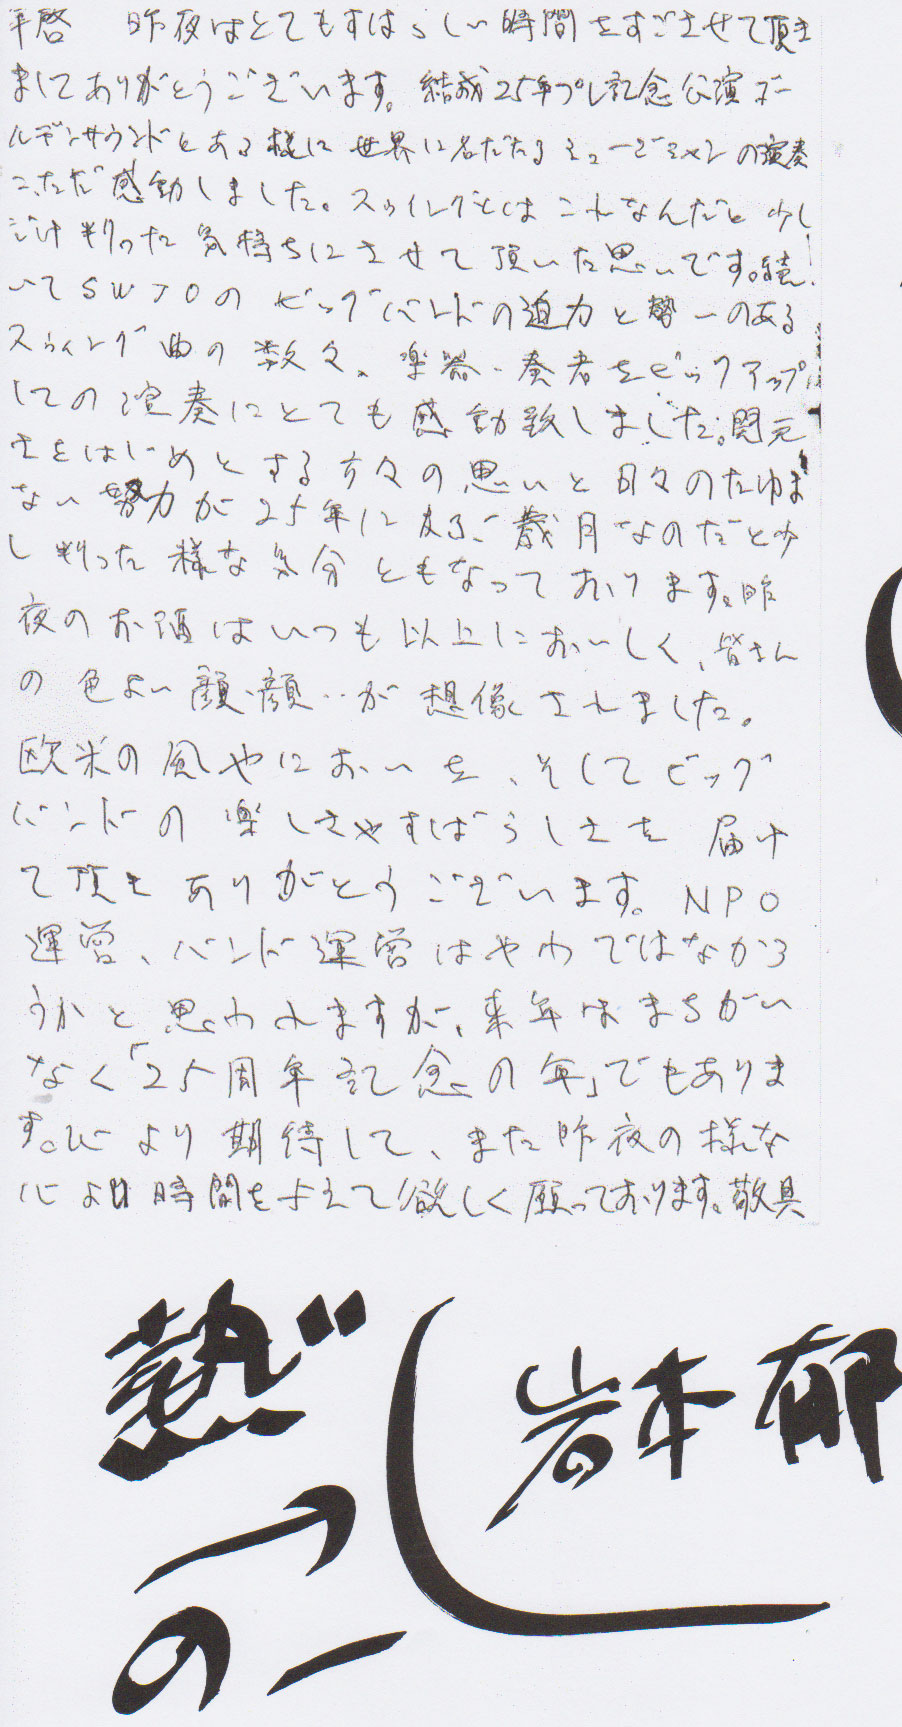 拝啓 昨夜はとてもすばらしい時間をすごさせて頂き
ましてありがとうございます。結成25年プレ記念公演ゴー
ルデンサウンドとある様に世界に名だたるミュージシャンの演奏
に、ただ感動しました。スウィングとはこれなんだと少し
だけ判った気持ちにさせて頂いた思いです。続
いてSWJOのビッグバンドの迫力と勢いのある
スウィング曲の数々、楽器・奏者をピックアップ
しての演奏にとても感動致しました。関元
さをはじめとする方々の思いと日々のたゆま
ない努力が25年に及ぶ歳月なのだと少
し判った様な気分ともなっております。昨
夜のお酒はいつも以上においしく、皆さん
の色よい顔、顔・・が想像されました。
欧米の風やにおいを、そしてビッグ
バンドの楽しさやすばらしさを届け
て頂きありがとうございます。NPO
運営、バンド運営はやわではなかろ
うかと思われますが、来年はまちがい
なく「25周年記念の年」でもありま
す。心より期待して、また昨夜の様な
心よい時間を与えて欲しく願っております。敬具
岩本 郁